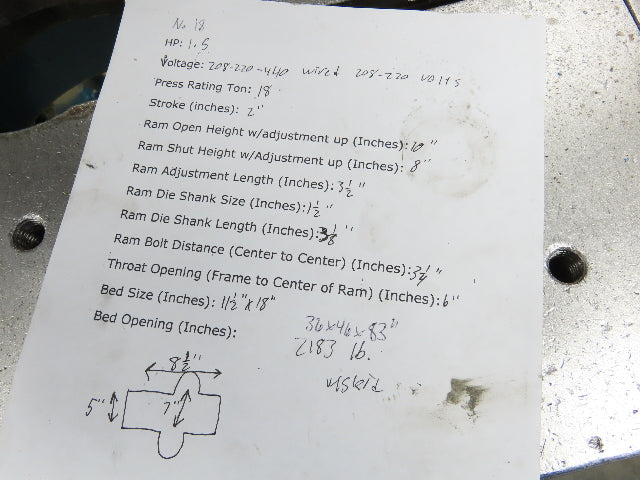 No 18
HP: 1.5
Voltage: 208-220-440 wired 208-220 volts
Press Rating Ton: 18
Stroke (inches): 2"
Ram Open Height w/adjustment up (Inches): 10"
Ram Shut Height w/Adjustment up (Inches): 8"
Ram Adjustment Length (Inches): 3 1/2"
Ram Die Shank Size (Inches): 1 1/2"
Ram Die Shank Length (Inches): "
Ram Bolt Distance (Center to Center) (Inches): 3 1/4"
Throat Opening (Frame to Center of Ram) (Inches): 6"
Bed Size (Inches): 11 1/2" x 18"
Bed Opening (Inches):
36x46x83"
2183 lb.
w/skid
8 1/2"
5"
7"